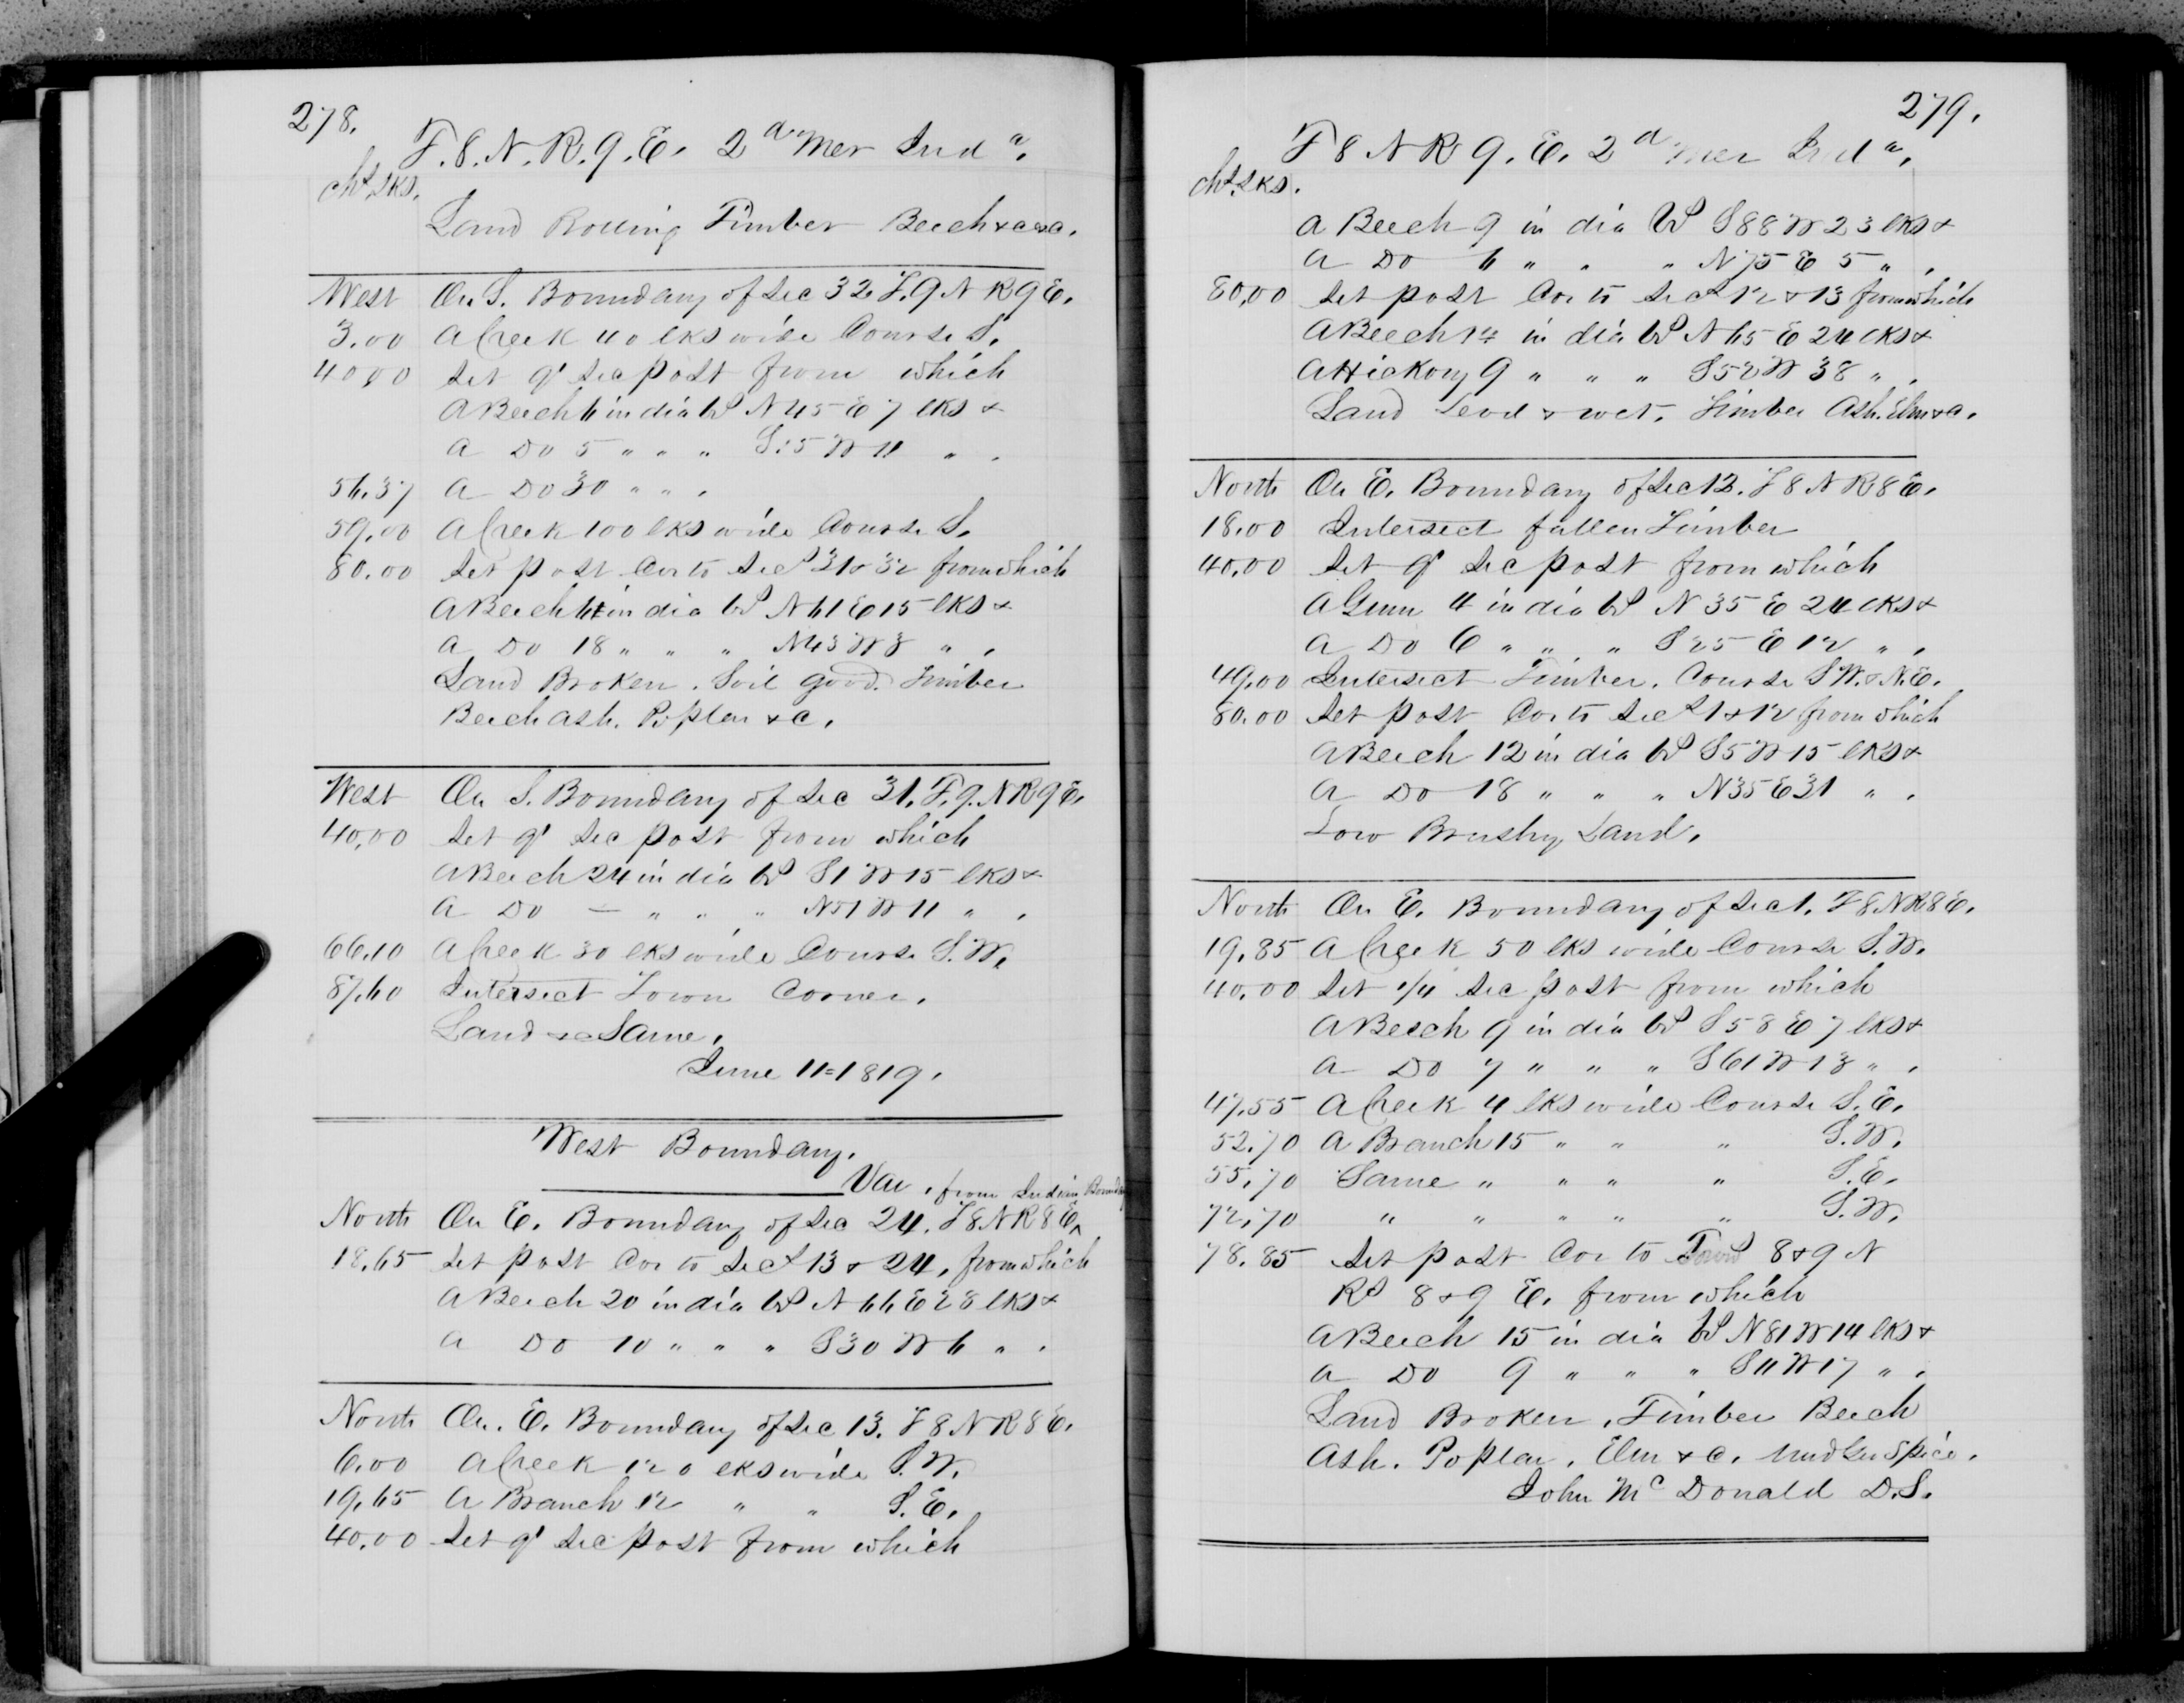 278.
T. 8. N. R. 9. E. 2d Mer Inda.
chs. lks.
Land Rolling Timber Beech &c &c.
West On S. Boundary of Sec 32 T. 9 N R 9 E.
3.00 A Creek 40 lks wide Course S.
40.00 Set qr Sec post from which
A Beech 6 in dia bs N 45 E 7 lks &
A Do 5 " " " S 15 W 11 " .
56.37 A Do 30 " " .
59.00 A Creek 100 lks wide Course S.
80.00 Set post Cor to Secs 31 & 32 from which
A Beech 14 in dia bs N 61 E 15 lks &
A Do 18 " " " N 43 W 3 " .
Land Broken. Soil good. Timber
Beech Ash. Poplar &c.
West On S. Boundary of Sec 31. T. 9. N R 9 E.
40.00 Set qr Sec post from which
A Beech 24 in dia bs S 1 W 15 lks &
A Do — " " " N 51 W 11 " .
66.10 A Creek 30 lks wide Course S. W.
87.60 Intersect Town Corner.
Land &c Same.
June 11 = 1819.
West Boundary.
Var. from Indian Boundary
North On E. Boundary of Sec 24. T 8 N R 8 E ^
18.65 Set post Cor to Secs 13 & 24, from which
A Beech 20 in dia bs N 66 E 28 lks &
A Do 10 " " " S 30 W 6 " .
North On. E. Boundary of Sec 13. T 8 N R 8 E.
6.00 A Creek 120 lks wide S. W.
19.65 A Branch 12 " " S. E.
40.00 Set qr Sec post from which
279.
T 8 N R 9. E. 2d Mer Inda.
chs. lks.
A Beech 9 in dia bs S 88 W 23 lks &
A Do 6 " " " N 75 E 5 " .
80.00 Set post Cor to Secs 12 & 13 from which
A Beech 14 in dia bs N 65 E 24 lks &
A Hickory 9 " " " S 52 W 38 " .
Land level & wet. Timber Ash. Elm &c.
North On E. Boundary of Sec 12. T 8 N R 8 E.
18.00 Intersect fallen Timber
40.00 Set qr Sec post from which
A Gum 4 in dia bs N 35 E 24 lks &
A Do 6 " " " S 25 E 12 " .
49.00 Intersect Timber. Course S W. & N. E.
80.00 Set post Cor to Secs 1 & 12 from which
A Beech 12 in dia bs S 5 W 15 lks &
A Do 18 " " " N 35 E 31 " .
Low Brushy Land.
North On E. Boundary of Sec 1. T 8 N R 8 E.
19.85 A Creek 50 lks wide Course S. W.
40.00 Set 1/4 Sec post from which
A Beech 9 in dia bs S 58 E 7 lks &
A Do 7 " " " S 61 W 13 " .
47.55 A Creek 4 lks wide Course S. E.
52.70 A Branch 15 " " " S. W.
55.70 Same " " " " S. E.
72.70 " " " " " S. W.
78.85 Set post Cor to Towns 8 & 9 N
Rs 8 & 9 E. from which
A Beech 15 in dia bs N 81 W 14 lks &
A Do 9 " " " S 11 W 17 " .
Land Broken. Timber Beech
Ash. Poplar. Elm &c. Und Gr Spice.
John Mc Donald D. S.